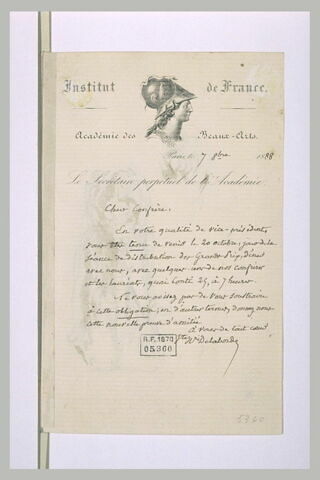 Institut de France.
Académie des Beaux-Arts.
Paris, le 7 8bre 1888
Le Secrétaire perpétuel de l'Académie
Cher Confrère,
En votre qualité de vice-président,
vous êtes tenu de venir le 20 octobre, jour de la
séance de distribution des Grands Prix, dîner
avec nous, avec quelques uns de nos confrères
et les lauréats, quai Conti 25, à 7 heures.
Ne vous avisez pas de vous soustraire
à cette obligation; en d'autres termes, donnez nous
cette nouvelle preuve d'amitié.
A vous de tout cœur
Vte Hri Delaborde
R.F. 1870
05360
5360